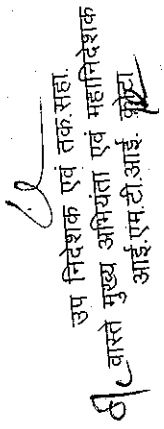 उप निदेशक एवं तक.सहा.
वास्ते मुख्य अभियंता एवं महानिदेशक
आई.एम.टी.आई. कोटा